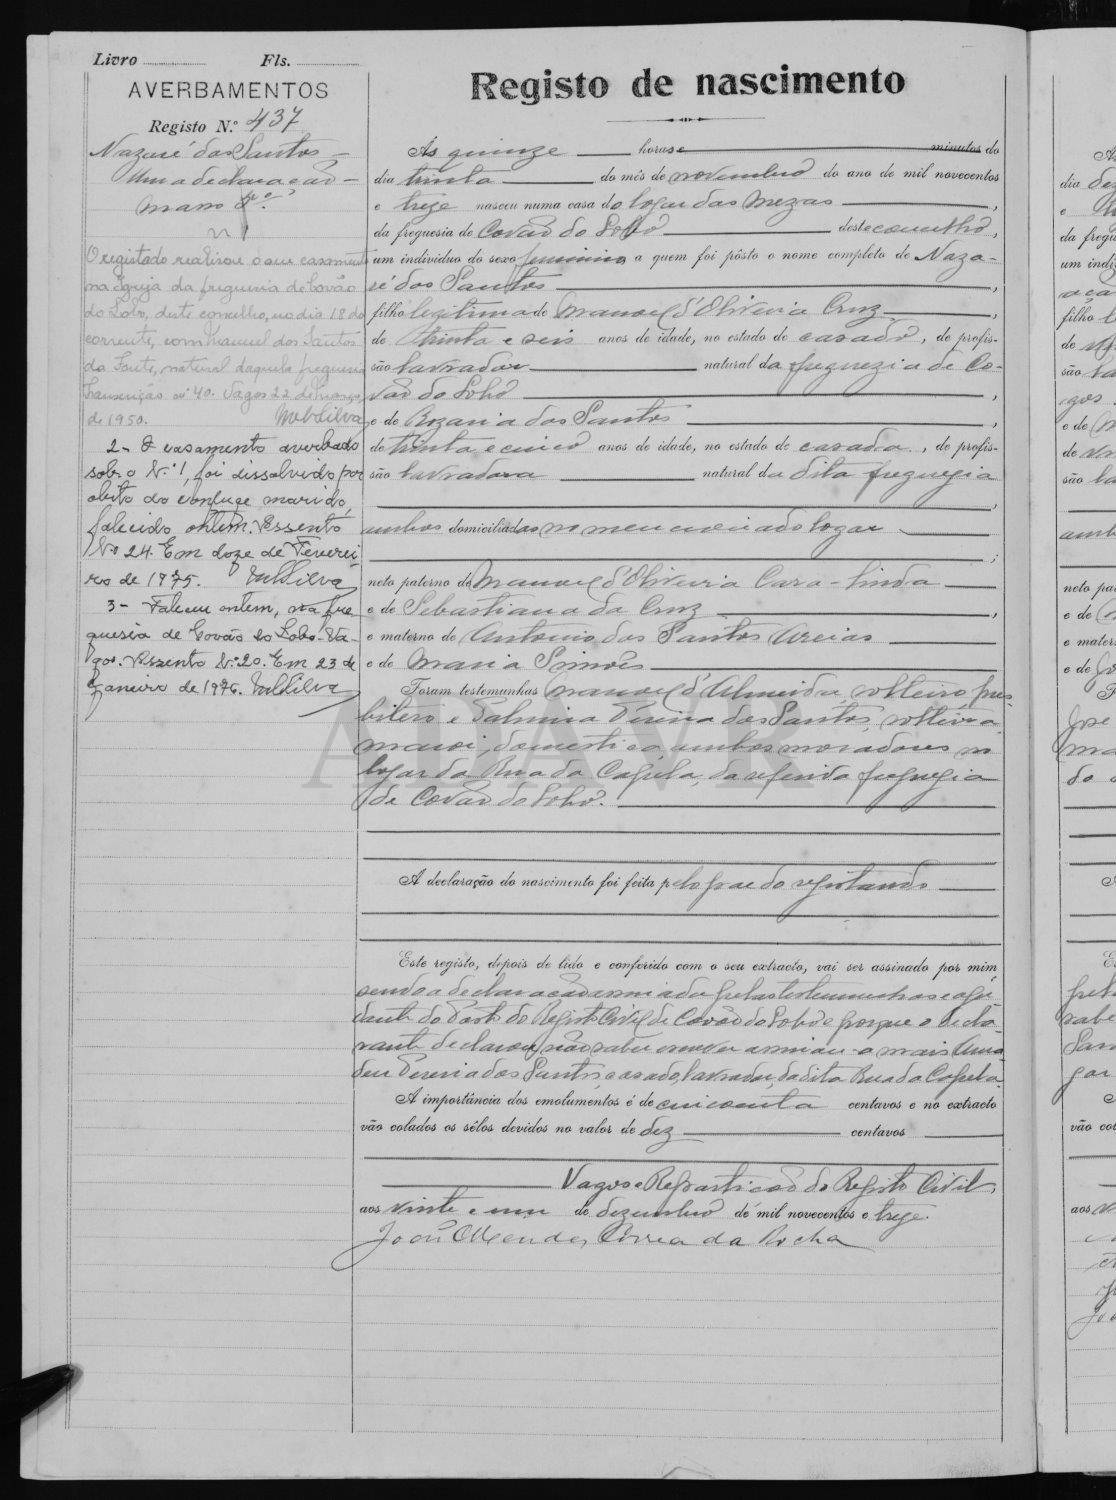 Livro Fls.
AVERBAMENTOS
Registo N.º 437
Nazaré dos Santos
Uma declaração
maço 1.º
n.º 1
O registado realisou o seu casamento
na igreja da freguesia de Covão
do Lobo, deste concelho, no dia 18 do
corrente, com Manuel dos Santos
da Fonte, natural daquela freguesia
Transcrição nº 40. Vagos 22 de março
de 1950. MebSilva
2- O casamento averbado
sob o N.º 1, foi dissolvido por
obito do conjuge marido,
falecido ontem. Assento
Nº 24. Em doze de Feverei-
ro de 1975.
3- Faleceu ontem, na fre
guesia de Covão do Lobo-Va-
gos. Assento N.º 20. Em 23 de
Janeiro de 1976.
Registo de nascimento
Ás quinze horas e minutos do
dia trinta do mês de novembro do ano de mil novecentos
e treze nasceu numa casa do logar das Mezas,
da freguesia de Covão do Lobo deste concelho,
um individuo do sexo feminino a quem foi pôsto o nome completo de Naza-
ré dos Santos,
filho legitima de Manoel d'Oliveira Cruz,
de trinta e seis anos de idade, no estado de casado, de profis-
são lavrador natural da freguezia de Co-
vão do Lobo,
e de Rozaria dos Santos,
de trinta e cinco anos de idade, no estado de casada, de profis-
são lavradora natural da dita freguezia,
ambos domiciliados no mencionado logar
;
neto paterno de Manoel d'Oliveira Cara-linda
e de Sebastiana da Cruz,
e materno de Antonio dos Santos Areias
e de Maria Simões
Foram testemunhas Manoel d'Almeida, solteiro, pres-
bitero e Palmira Pereira dos Santos, solteira
maior, domestica ambos moradores no
logar da Rua da Capela, da referida freguezia
de Covão do Lobo.
A declaração do nascimento foi feita pelo pae do registando
Este registo, depois de lido e conferido com o seu extracto, vai ser assinado por mim
sendo a declaração assinada pelas testemunhas e aju
dante do Posto do Registo Civil de Covão do Lobo e porque o decla-
rante declarou não saber escrever assinou-a mais Ama-
deu Pereira dos Santos, casado, lavrador, da dita Rua da Capela.
A importância dos emolumentos é de cincoenta centavos e no extracto
vão colados os sêlos devidos no valor de dez centavos
Vagos e Repartição do Registo Civil,
aos vinte e um de dezembro de mil novecentos e treze.
João Mendes Correa da Rocha
ADAVR